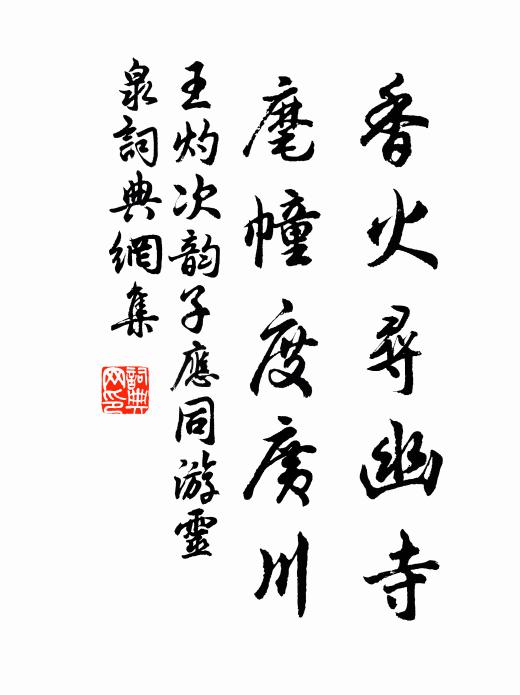 香火尋幽寺
麾幢度廣川
王灼次韵子應同游靈
泉詞典網集
詞典
网印